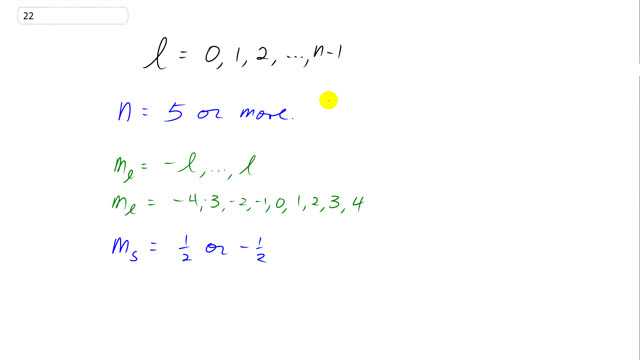 22
l = 0, 1, 2, ..., n-1
n = 5 or more.
m_l = -l, ..., l
m_l = -4, -3, -2, -1, 0, 1, 2, 3, 4
m_s = 1/2 or -1/2